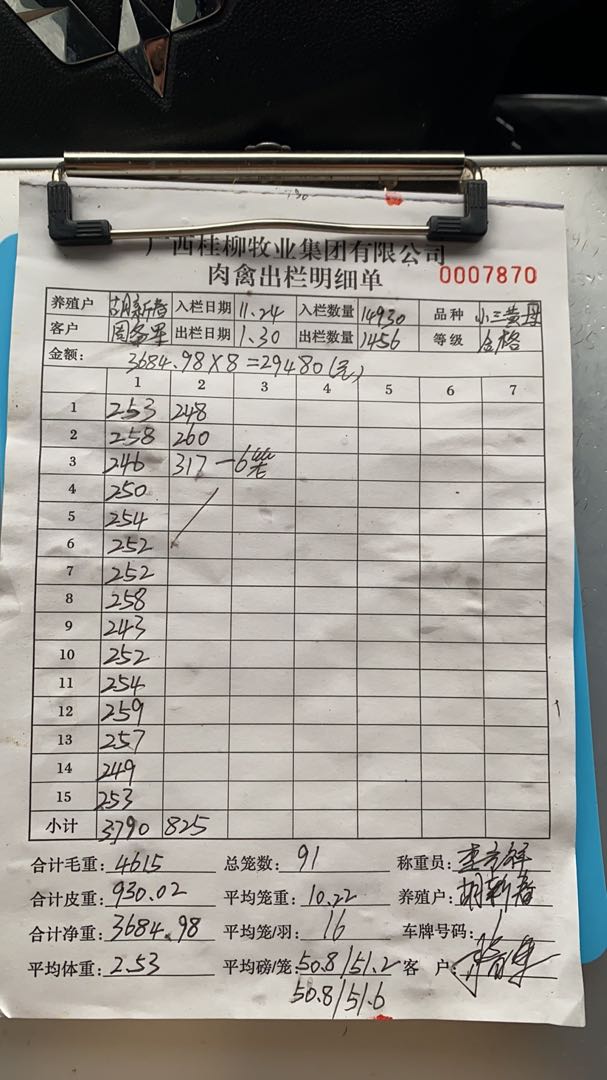 广西桂柳牧业集团有限公司
肉禽出栏明细单 0007870
养殖户 胡新春 入栏日期 11.24 入栏数量 14930 品种 小三黄母
客户 出栏日期 1.30 出栏数量 1456 等级 合格
金额: 3684.98×8=29480(元)
1 2 3 4 5 6 7
1 253 248
2 258 260
3 246 317-6笼
4 250
5 254
6 252
7 252
8 258
9 243
10 252
11 254
12 259
13 257
14 249
15 253
小计 3790 825
合计毛重: 4615 总笼数: 91 称重员:
合计皮重: 930.02 平均笼重: 10.22 养殖户: 胡新春
合计净重: 3684.98 平均笼/羽: 16 车牌号码:
平均体重: 2.53 平均磅/笼: 50.8/51.2 客 户:
50.8/51.6